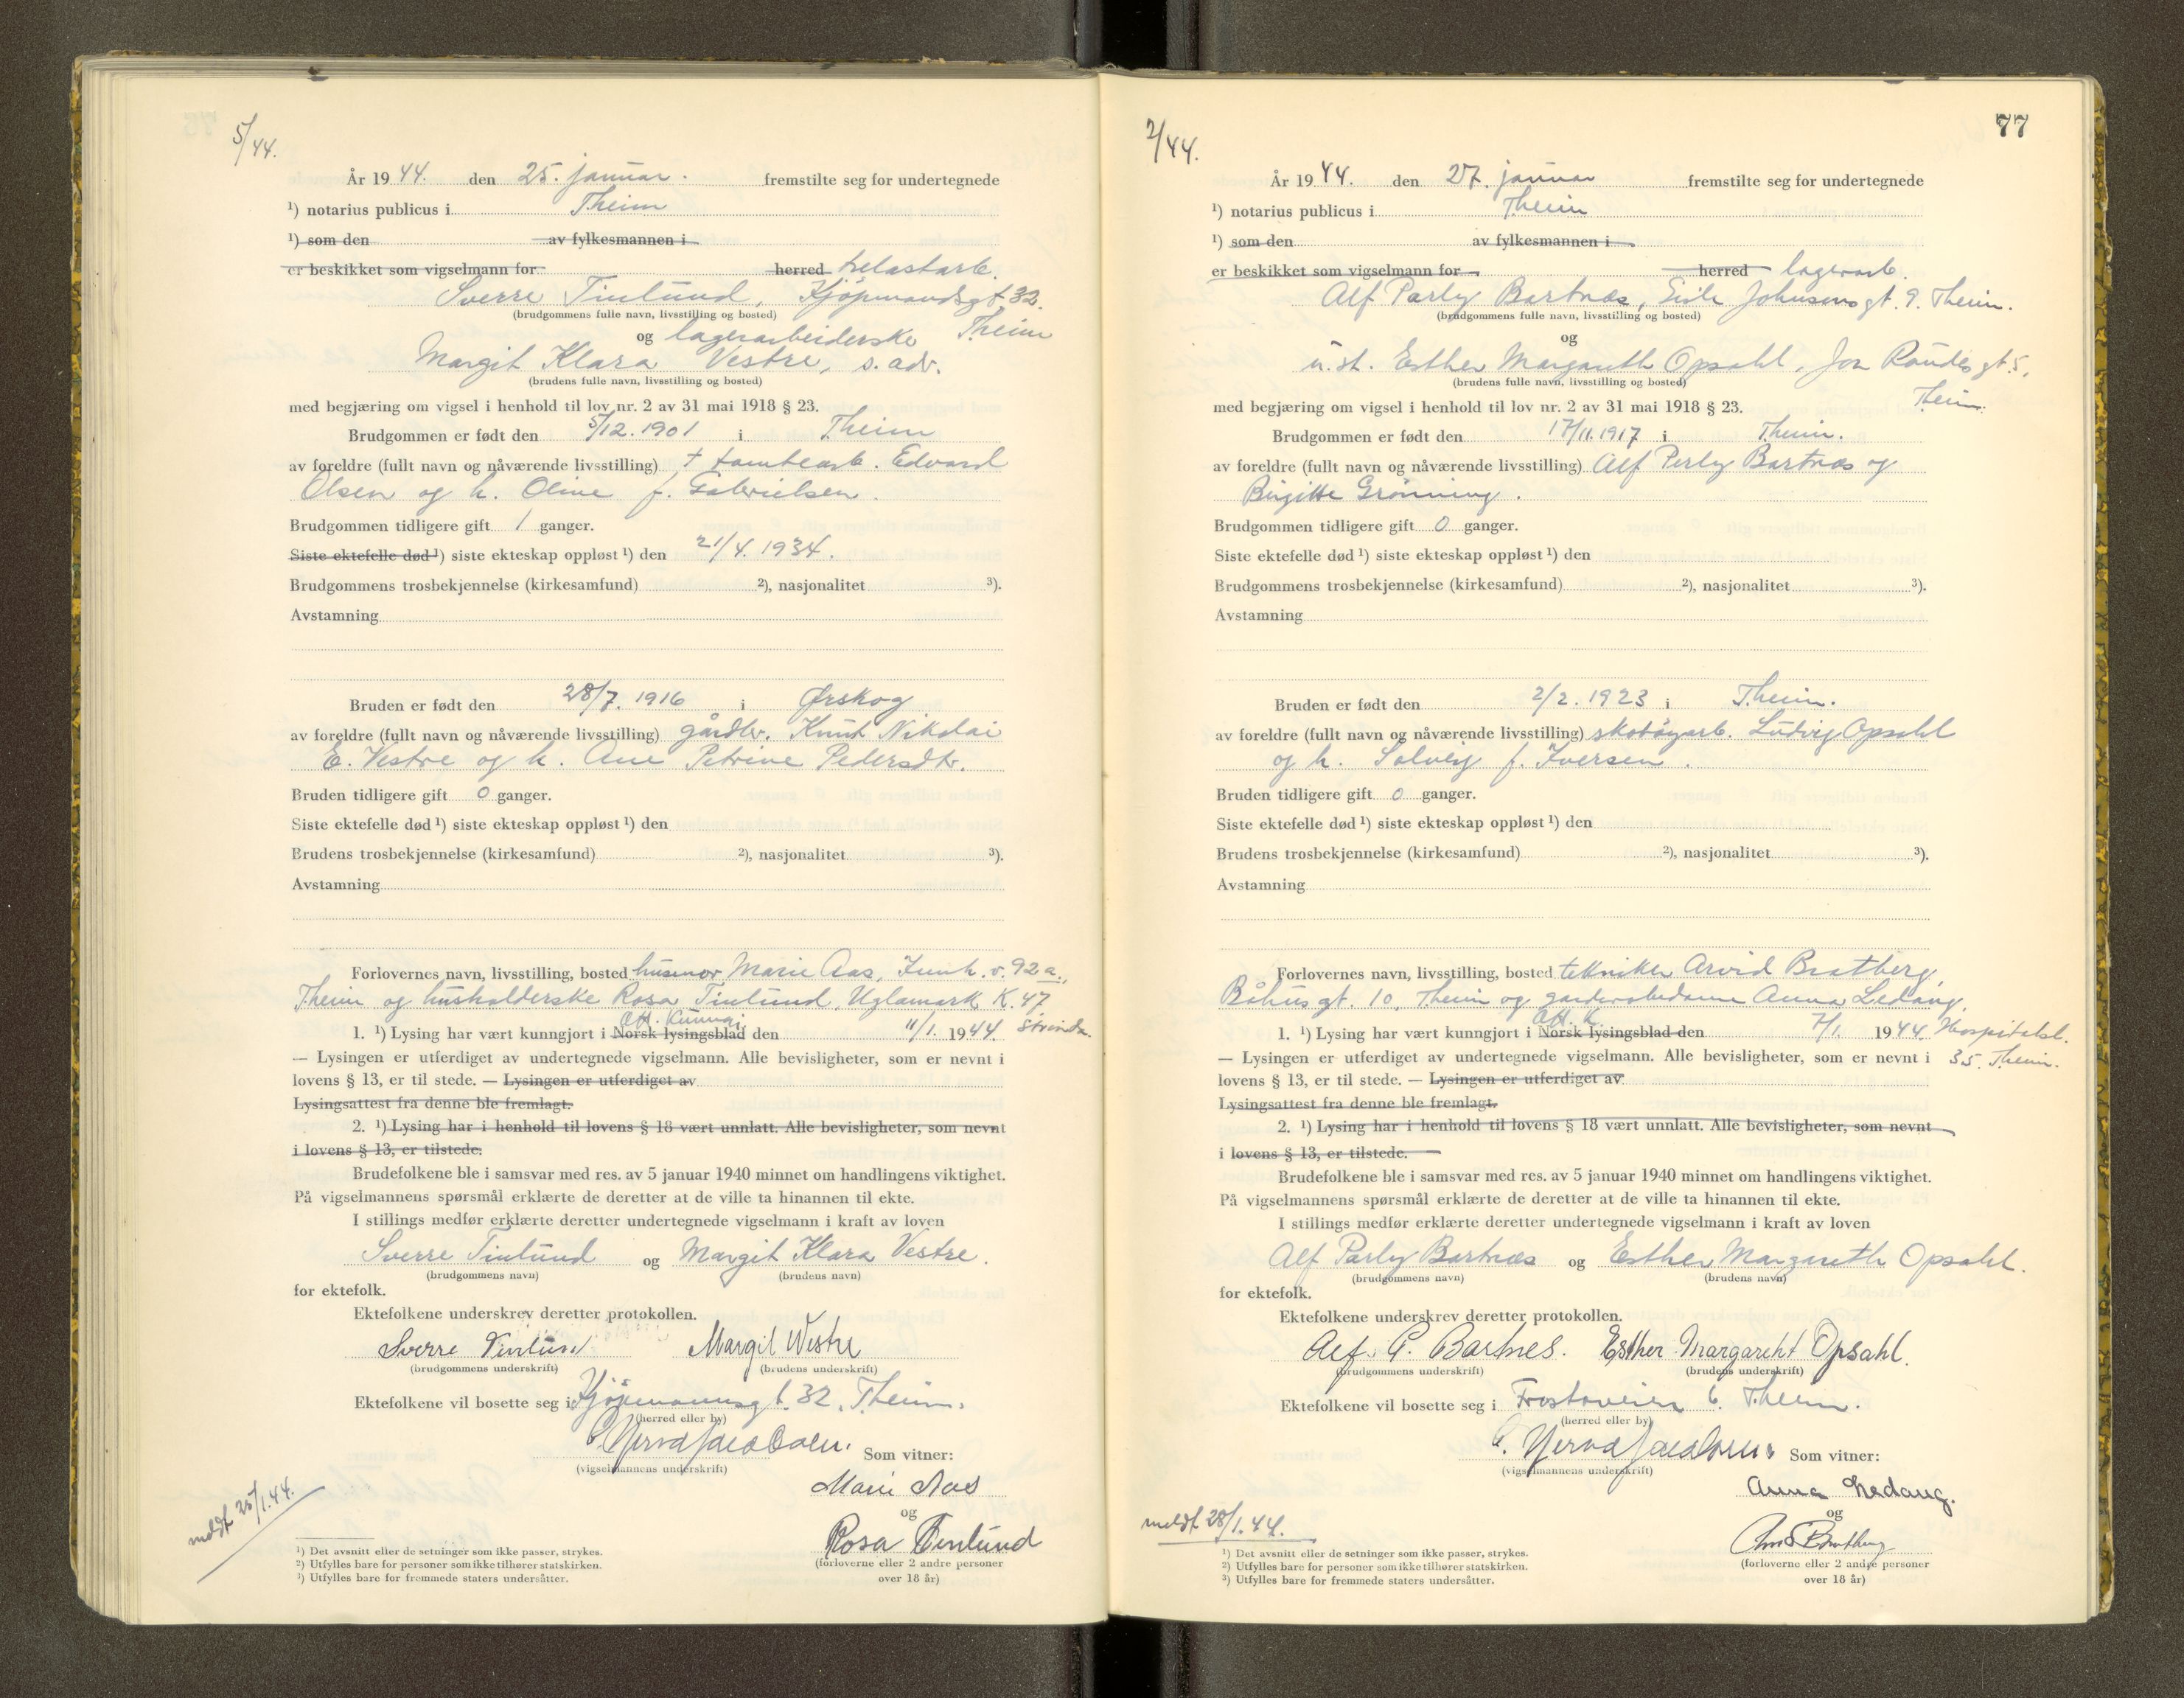 5/44.
År 19 44. den 25. januar. fremstilte seg for undertegnede
¹) notarius publicus i Theim
¹) som den av fylkesmannen i
er beskikket som vigselmann for herred
Sverre Tinlund, Kjøpmandsgt. 32.
(brudgommens fulle navn, livsstilling og bosted)
og lagerarbeiderske Theim
Margit Klara Vestre, s. adr.
(brudens fulle navn, livsstilling og bosted)
med begjæring om vigsel i henhold til lov nr. 2 av 31 mai 1918 § 23.
Brudgommen er født den 5/12. 1901 i Theim
av foreldre (fullt navn og nåværende livsstilling) † tomtearb. Edvard
Olsen og h. Oline f. Gabrielsen.
Brudgommen tidligere gift 1 ganger.
Siste ektefelle død ¹) siste ekteskap oppløst ¹) den 21/4. 1934.
Brudgommens trosbekjennelse (kirkesamfund) ²), nasjonalitet ³).
Avstamning
Bruden er født den 28/7. 1916 i Ørskog
av foreldre (fullt navn og nåværende livsstilling) gårdbr. Knut Nikolai
E. Vestre og h. Ane Petrine Pedersdtr.
Bruden tidligere gift 0 ganger.
Siste ektefelle død ¹) siste ekteskap oppløst ¹) den
Brudens trosbekjennelse (kirkesamfund) ²), nasjonalitet ³).
Avstamning
Forlovernes navn, livsstilling, bosted husmor Marie Aas, Innh. v. 92 a.,
Theim og husholderske Rosa Tinlund, Uglamark K. 47
Off. Kunngj.
1. ¹) Lysing har vært kunngjort i Norsk lysingsblad den 11/1. 1944. Strinda.
— Lysingen er utferdiget av undertegnede vigselmann. Alle bevisligheter, som er nevnt i
lovens § 13, er til stede. — Lysingen er utferdiget av
Lysingsattest fra denne ble fremlagt.
2. ¹) Lysing har i henhold til lovens § 18 vært unnlatt. Alle bevisligheter, som nevnt
i lovens § 13, er tilstede.
Brudefolkene ble i samsvar med res. av 5 januar 1940 minnet om handlingens viktighet.
På vigselmannens spørsmål erklærte de deretter at de ville ta hinannen til ekte.
I stillings medfør erklærte deretter undertegnede vigselmann i kraft av loven
Sverre Tinlund og Margit Klara Vestre.
(brudgommens navn) (brudens navn)
for ektefolk.
Ektefolkene underskrev deretter protokollen.
Sverre Tinlund Margit Westre
(brudgommens underskrift) (brudens underskrift)
Ektefolkene vil bosette seg i Kjøpmannsgt. 32, Theim.
(herred eller by)
Som vitner:
(vigselmannens underskrift)
Marie Aas
og
Rosa Tinlund
(forloverne eller 2 andre personer
over 18 år)
meldt 25/1.44.
¹) Det avsnitt eller de setninger som ikke passer, strykes.
²) Utfylles bare for personer som ikke tilhører statskirken.
³) Utfylles bare for fremmede staters undersåtter.
77
2/44.
År 19 44. den 27. januar fremstilte seg for undertegnede
¹) notarius publicus i Theim
¹) som den av fylkesmannen i
er beskikket som vigselmann for herred lagerarb.
Alf Parly Bartnæs, Eirik Johnsensgt. 9. Theim.
(brudgommens fulle navn, livsstilling og bosted)
og
u. st. Esther Margareth Opsahl, Jon Raudesgt. 5,
(brudens fulle navn, livsstilling og bosted)
Theim.
med begjæring om vigsel i henhold til lov nr. 2 av 31 mai 1918 § 23.
Brudgommen er født den 17/11. 1917 i Theim.
av foreldre (fullt navn og nåværende livsstilling) Alf Perly Bartnæs og
Birgitte Grønning.
Brudgommen tidligere gift 0 ganger.
Siste ektefelle død ¹) siste ekteskap oppløst ¹) den
Brudgommens trosbekjennelse (kirkesamfund) ²), nasjonalitet ³).
Avstamning
Bruden er født den 2/2. 1923 i Theim.
av foreldre (fullt navn og nåværende livsstilling) skotøyarb. Ludvig Opsahl
og h. Solveig f. Iversen.
Bruden tidligere gift 0 ganger.
Siste ektefelle død ¹) siste ekteskap oppløst ¹) den
Brudens trosbekjennelse (kirkesamfund) ²), nasjonalitet ³).
Avstamning
Forlovernes navn, livsstilling, bosted tekniker Arvid Bratberg,
Båhusgt. 10, Theim og garderobedame Anna Ledang,
Off. K.
1. ¹) Lysing har vært kunngjort i Norsk lysingsblad den 7/1. 1944. Hospitalsl.
— Lysingen er utferdiget av undertegnede vigselmann. Alle bevisligheter, som er nevnt i 35. Theim.
lovens § 13, er til stede. — Lysingen er utferdiget av
Lysingsattest fra denne ble fremlagt.
2. ¹) Lysing har i henhold til lovens § 18 vært unnlatt. Alle bevisligheter, som nevnt
i lovens § 13, er tilstede.
Brudefolkene ble i samsvar med res. av 5 januar 1940 minnet om handlingens viktighet.
På vigselmannens spørsmål erklærte de deretter at de ville ta hinannen til ekte.
I stillings medfør erklærte deretter undertegnede vigselmann i kraft av loven
Alf Parly Bartnæs og Esther Margareth Opsahl.
(brudgommens navn) (brudens navn)
for ektefolk.
Ektefolkene underskrev deretter protokollen.
Alf. P. Bartnes. Esther Margareht Opsahl.
(brudgommens underskrift) (brudens underskrift)
Ektefolkene vil bosette seg i Frostaveien 6. Theim.
(herred eller by)
Som vitner:
(vigselmannens underskrift)
Anna Ledang.
og
(forloverne eller 2 andre personer
over 18 år)
meldt 28/1.44.
¹) Det avsnitt eller de setninger som ikke passer, strykes.
²) Utfylles bare for personer som ikke tilhører statskirken.
³) Utfylles bare for fremmede staters undersåtter.